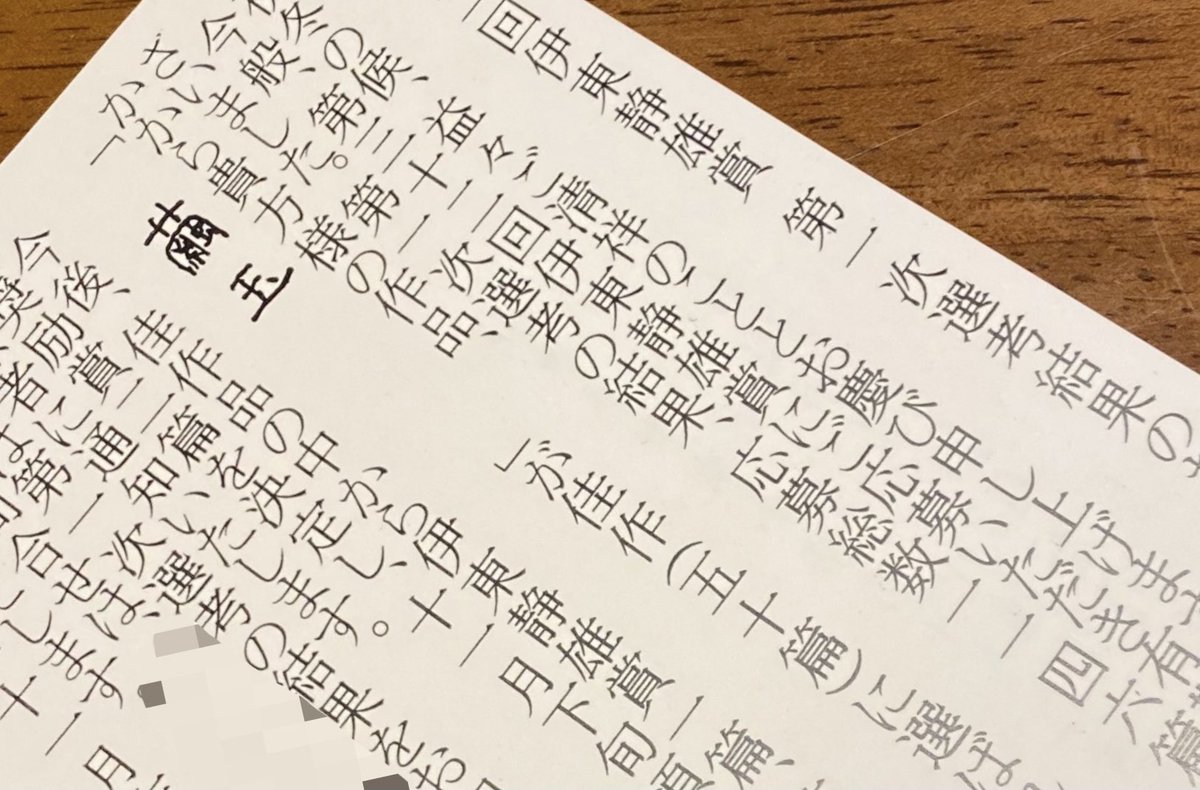 回伊東静雄賞 第一次選考結果の
冬の候、益々ご清祥のこととお慶び申し上げま
今般、第三十二回伊東静雄賞にご応募いただき有
さいました。第一次選考の結果、応募総数一一四六篇
かから貴方様の作品、
「繭玉」が佳作(五十篇)に選ば
今後、佳作品の中から伊東静雄賞一篇、
奨励賞二篇を決定し、十一月下旬頃
者に通知いたします。
第一次選考の結果をお
合せは、
します
十一月